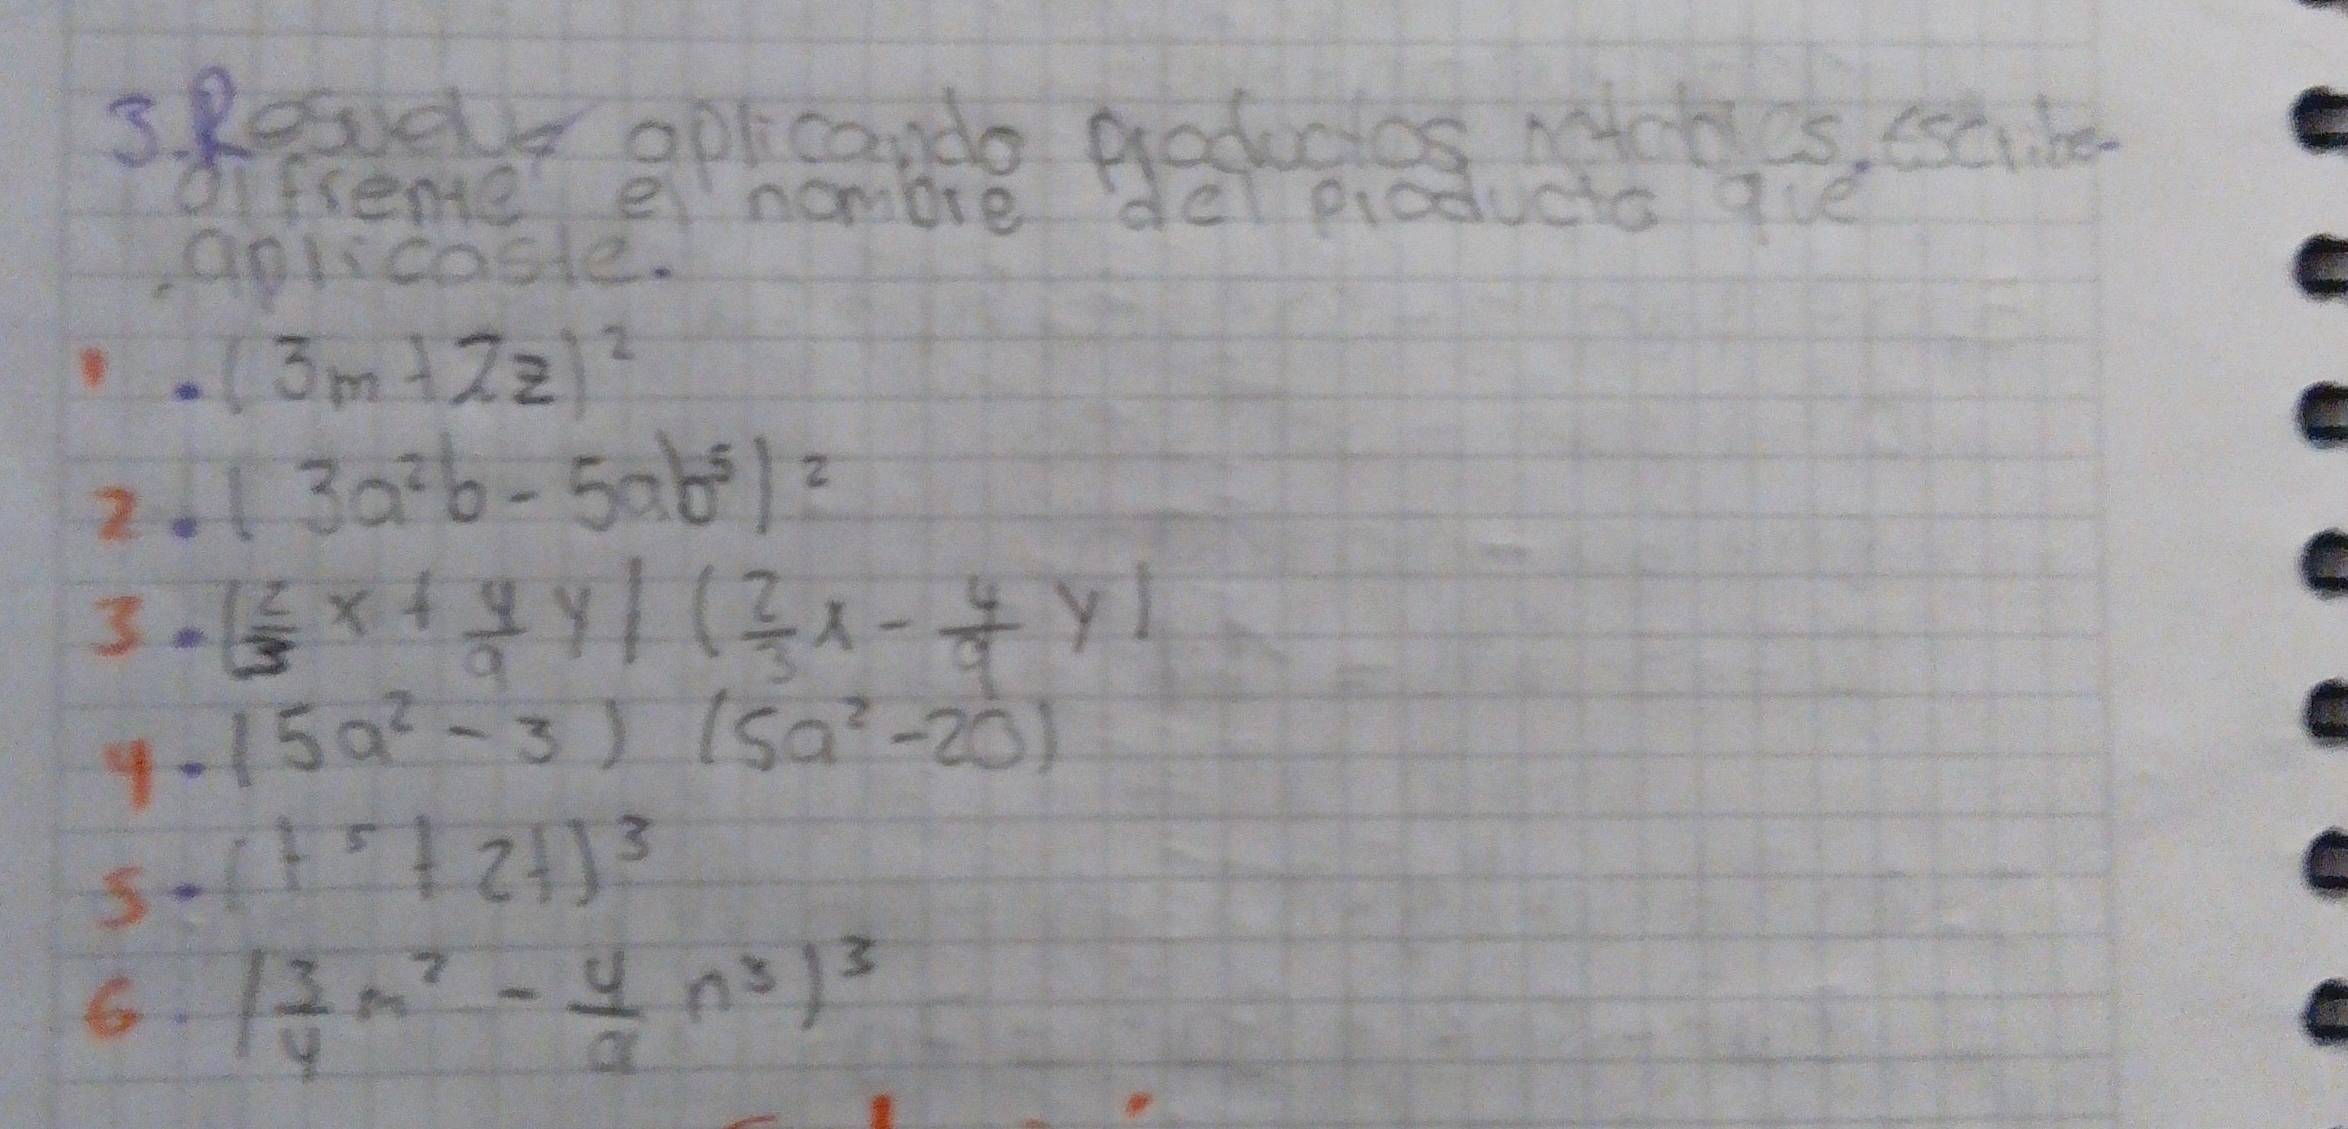 3. Resuelve aplicando productos notables. escribe
al frente el nombre del producto que
aplicaste.
1 . (3m + 2z)²
2 . (3a²b - 5ab⁵)²
3 . (2/3 x + 4/9 y) (2/3 x - 4/9 y)
4 . (5a² - 3) (5a² - 20)
5 . (t⁵ + 2t)³
6 . (3/4 m² - 4/9 n³)³